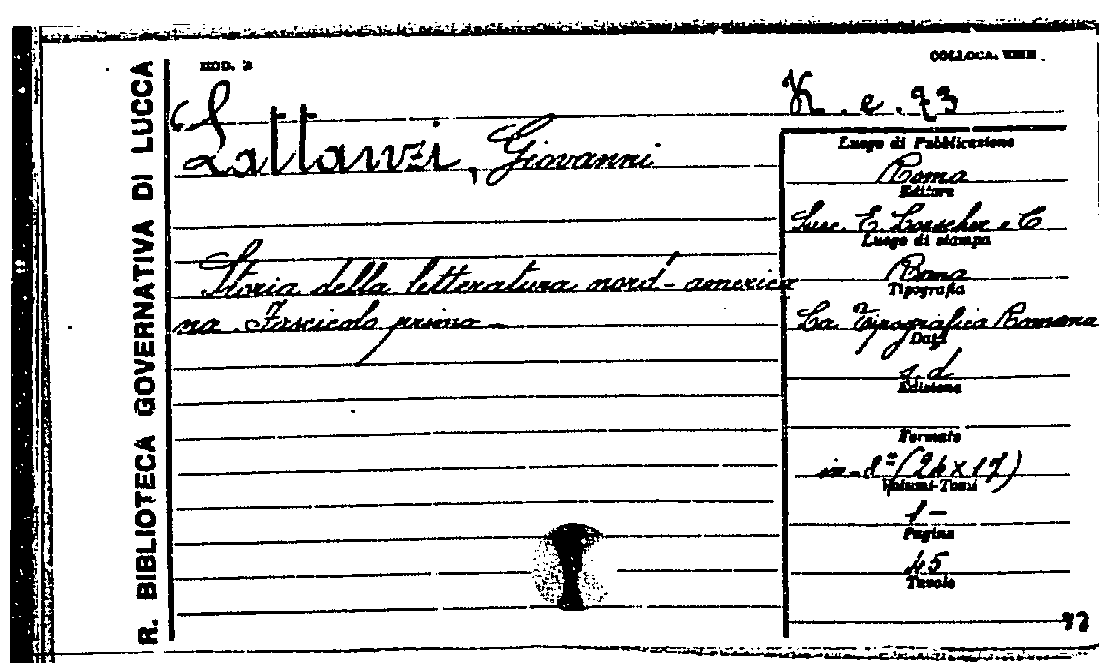 R. BIBLIOTECA GOVERNATIVA DI LUCCA
MOD. 2
COLLOCAZIONE
K. e. 73
Lattanzi, Giovanni
Storia della letteratura nord-america
na. Fascicolo primo
Luogo di Pubblicazione
Roma
Editore
Succ. E. Loescher e C
Luogo di stampa
Roma
Tipografia
Co. Tipografica Romana
Data
s. d.
Edizione
Formato
in-8º (24 x 17)
Volumi-Tomi
1 -
Pagine
45
Tavole